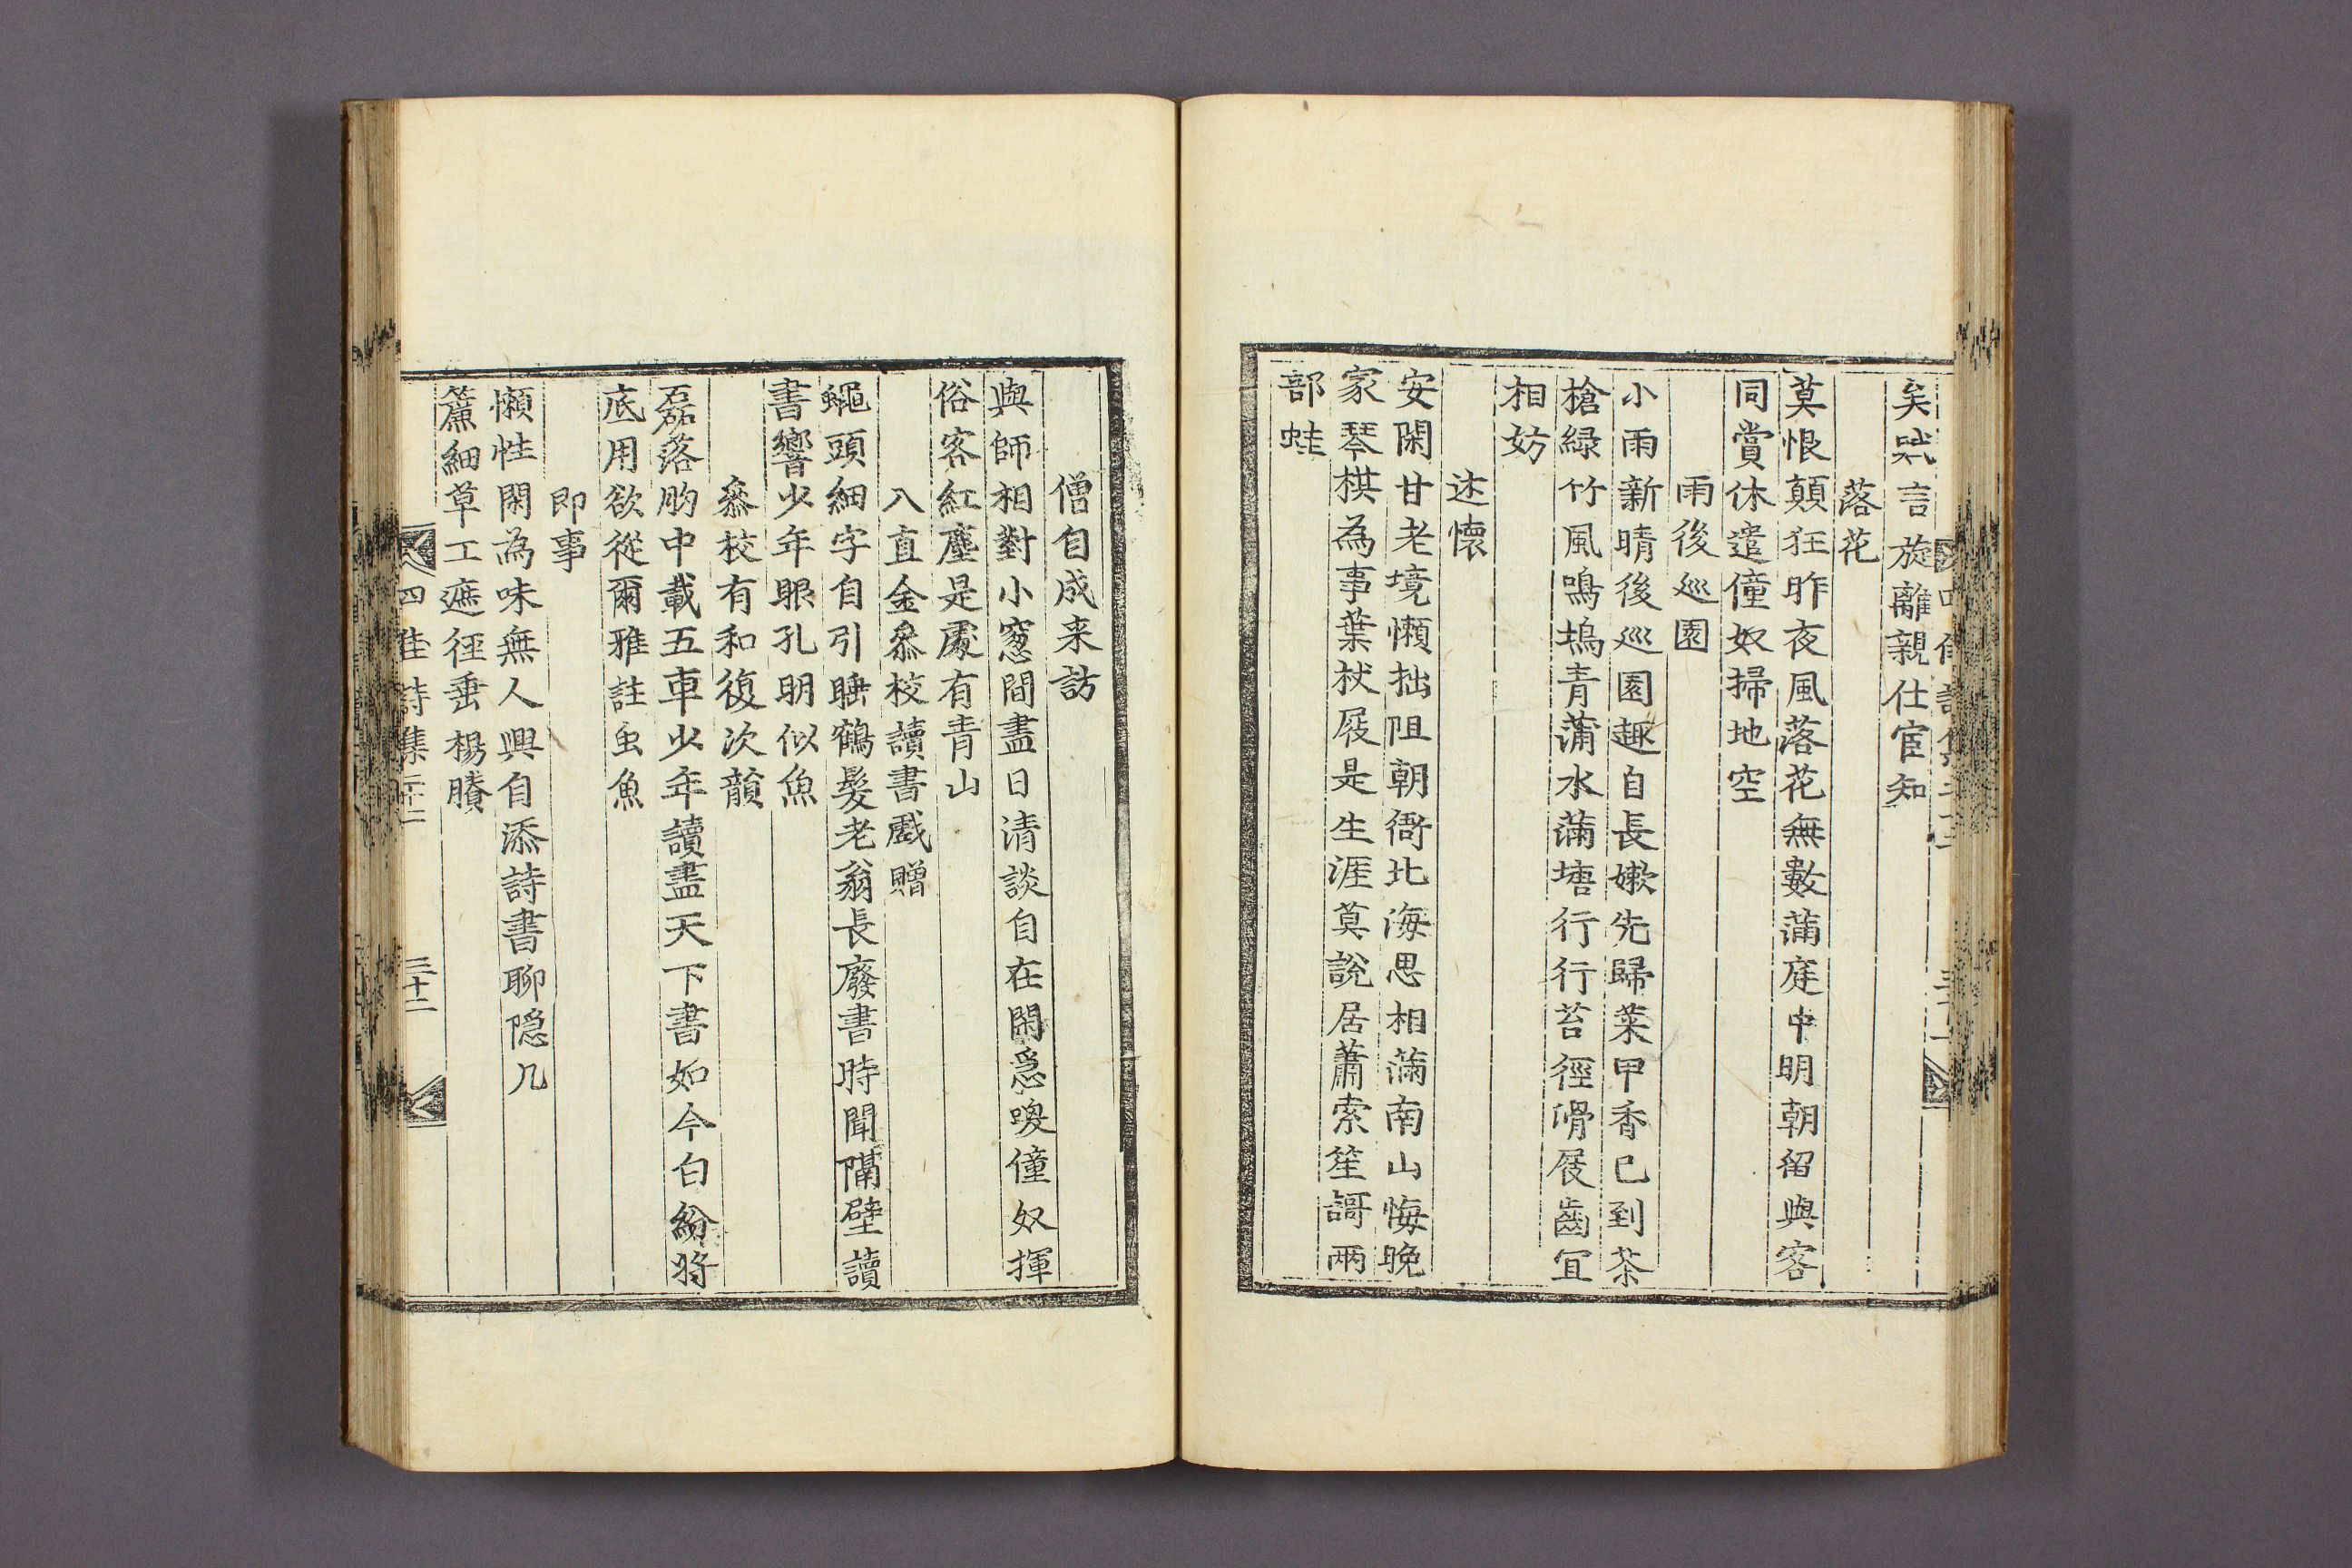 矣哉言旋離親仕宦知
落花
莫恨顛狂昨夜風落花無數蒲庭中明朝留與客
同賞休遣僮奴掃地空
雨後巡園
小雨新晴後巡園趣自長嫰先歸菜甲香已到茶
槍緑竹風鳴塢青蒲水滿塘行行苔徑滑屐齒冝
相妨
述懷
安閑甘老境懶拙阻朝衙北海思相滿南山悔晚
家琴棋為事葉杖屐是生涯莫說居蕭索笙謌兩
部蛙
僧自成来訪
與師相對小窓間盡日清談自在閑急喚僮奴揮
俗客紅塵是處有青山
入直金叅校讀書戲贈
蠅頭細字自引睡鶴髮老翁長廢書時聞隔壁讀
書響少年眼孔明似魚
叅校有和復次韻
磊落胷中載五車少年讀盡天下書如今白紛将
底用欲從爾雅註虫魚
即事
懶性閑為味無人興自添詩書聊隠几
簾細草工遮徑垂楊賸
四佳詩集
三十二